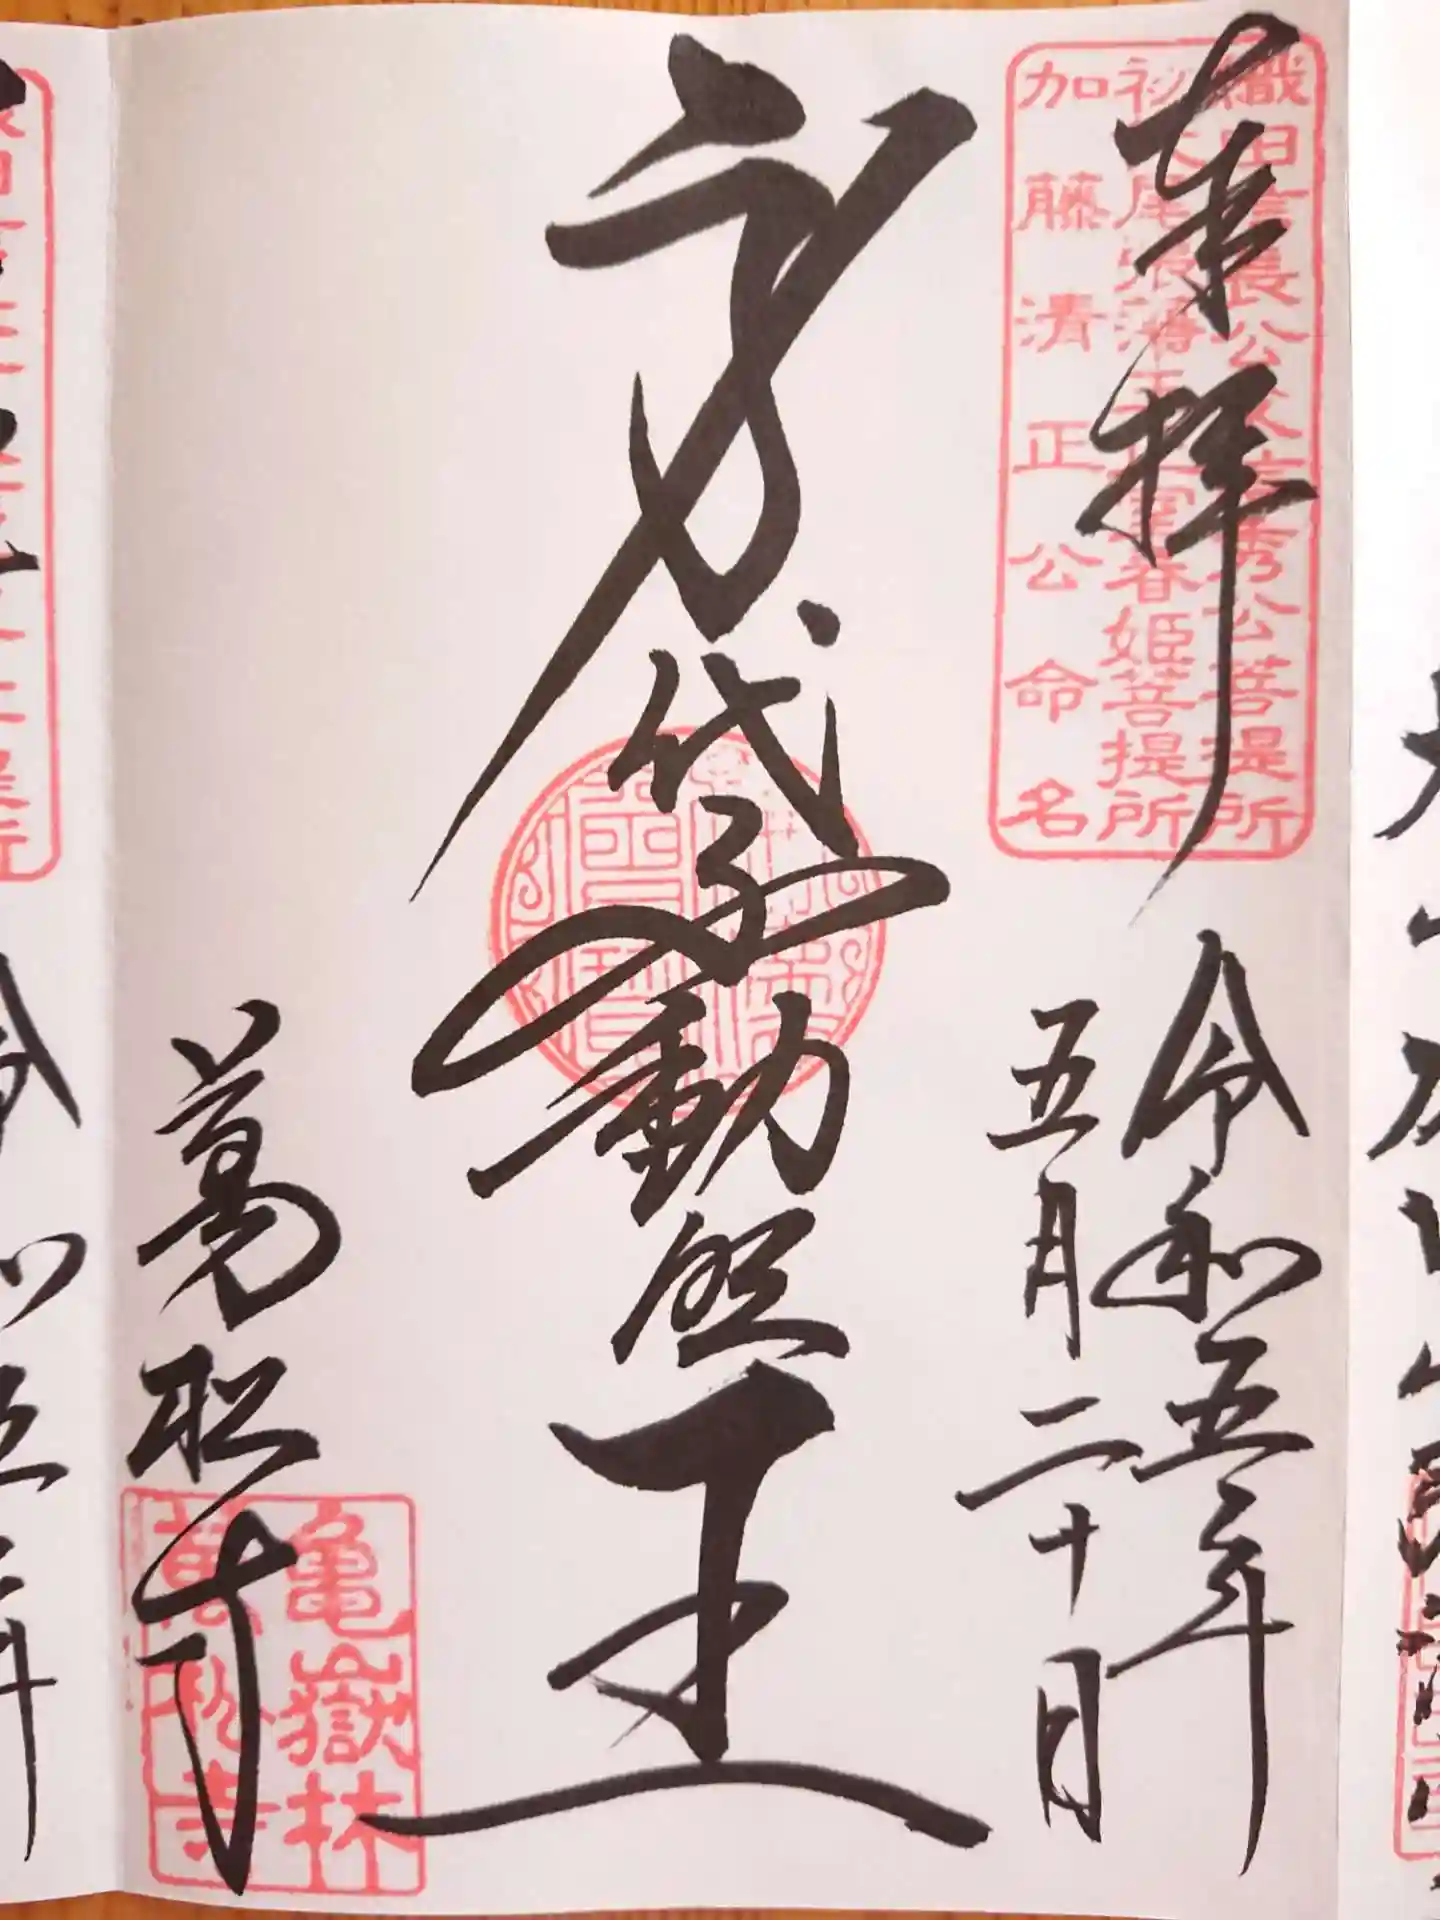 奉拝
織田信長公父信秀公菩提所
初代尾張藩主正室春姫菩提所
加藤清正公命名
令和五年
五月二十日
身代不動明王
萬松寺
亀嶽林
萬松寺